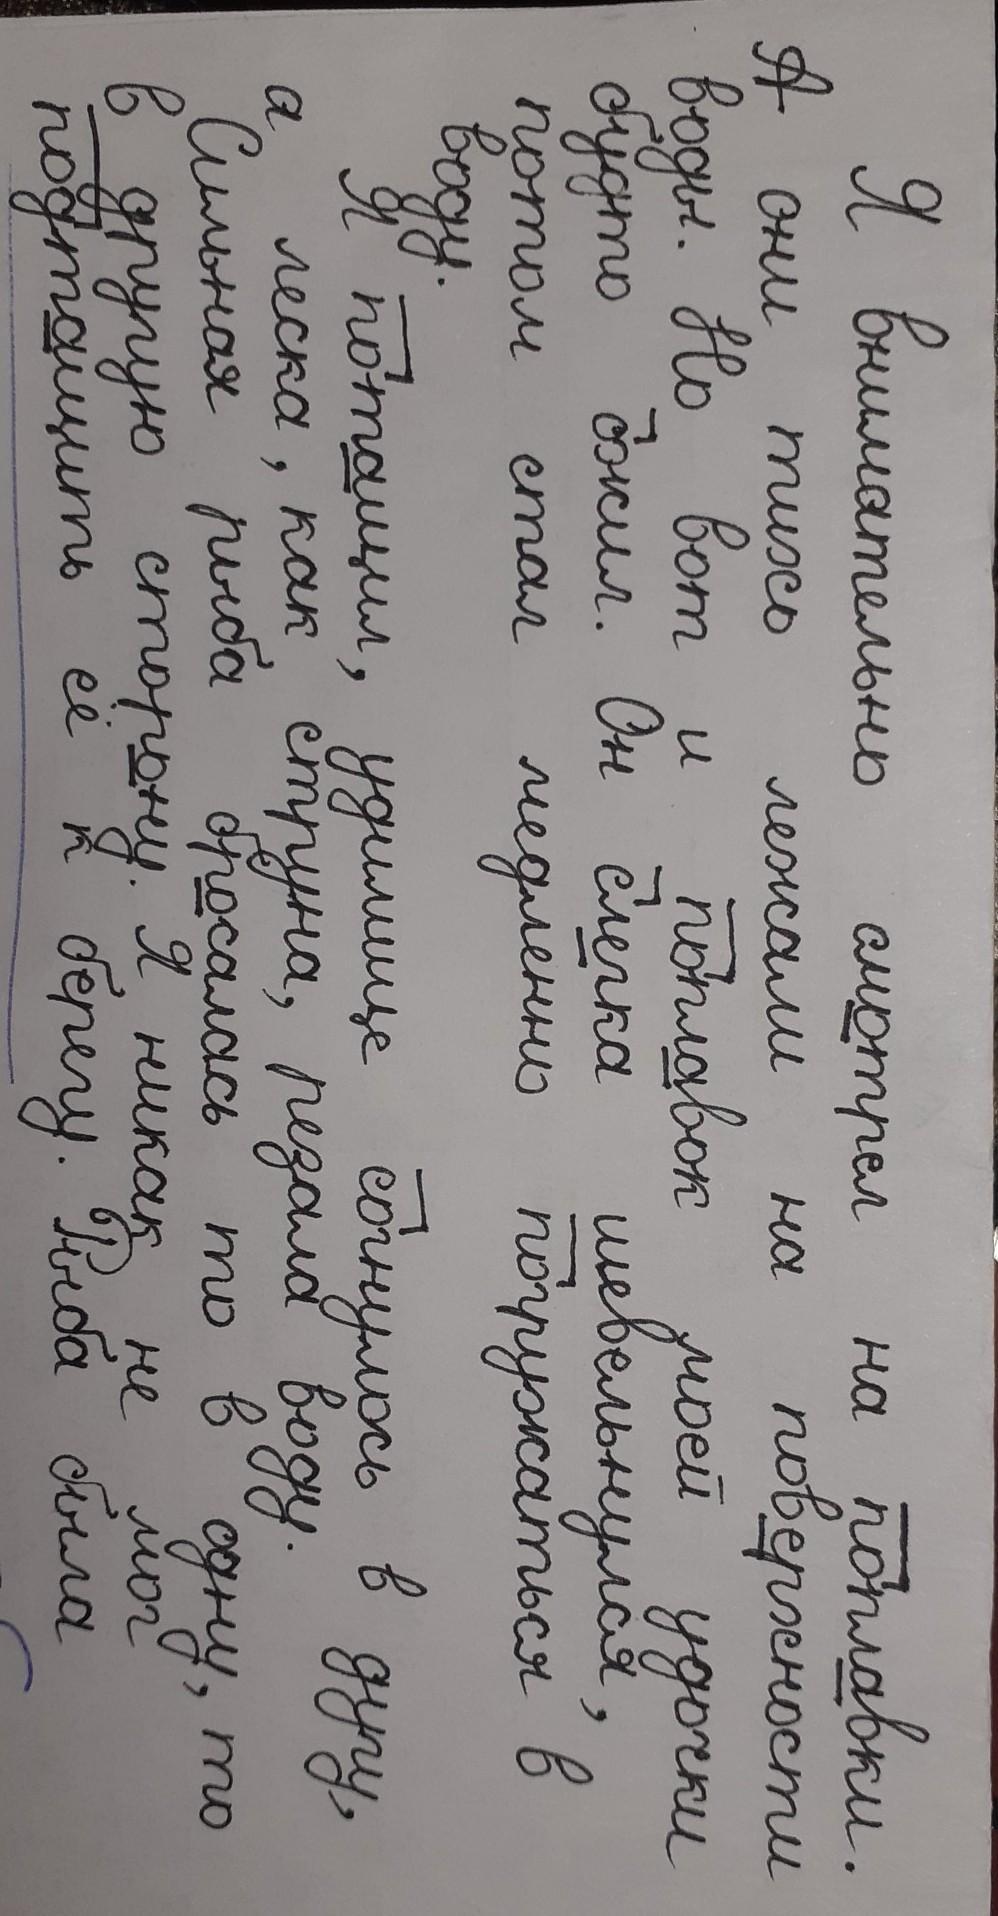 Я внимательно смотрел на поплавки.
А они тихо лежали на поверхности
воды. Но вот и поплавок моей удочки
будто ожил. Он слегка шевельнулся,
потом стал медленно погружаться в
воду.
Я потащил, удилище согнулось в дугу,
а леска, как струна, резала воду.
Сильная рыба бросалась то в одну, то
в другую сторону. Я никак не мог
подтащить её к берегу. Рыба была